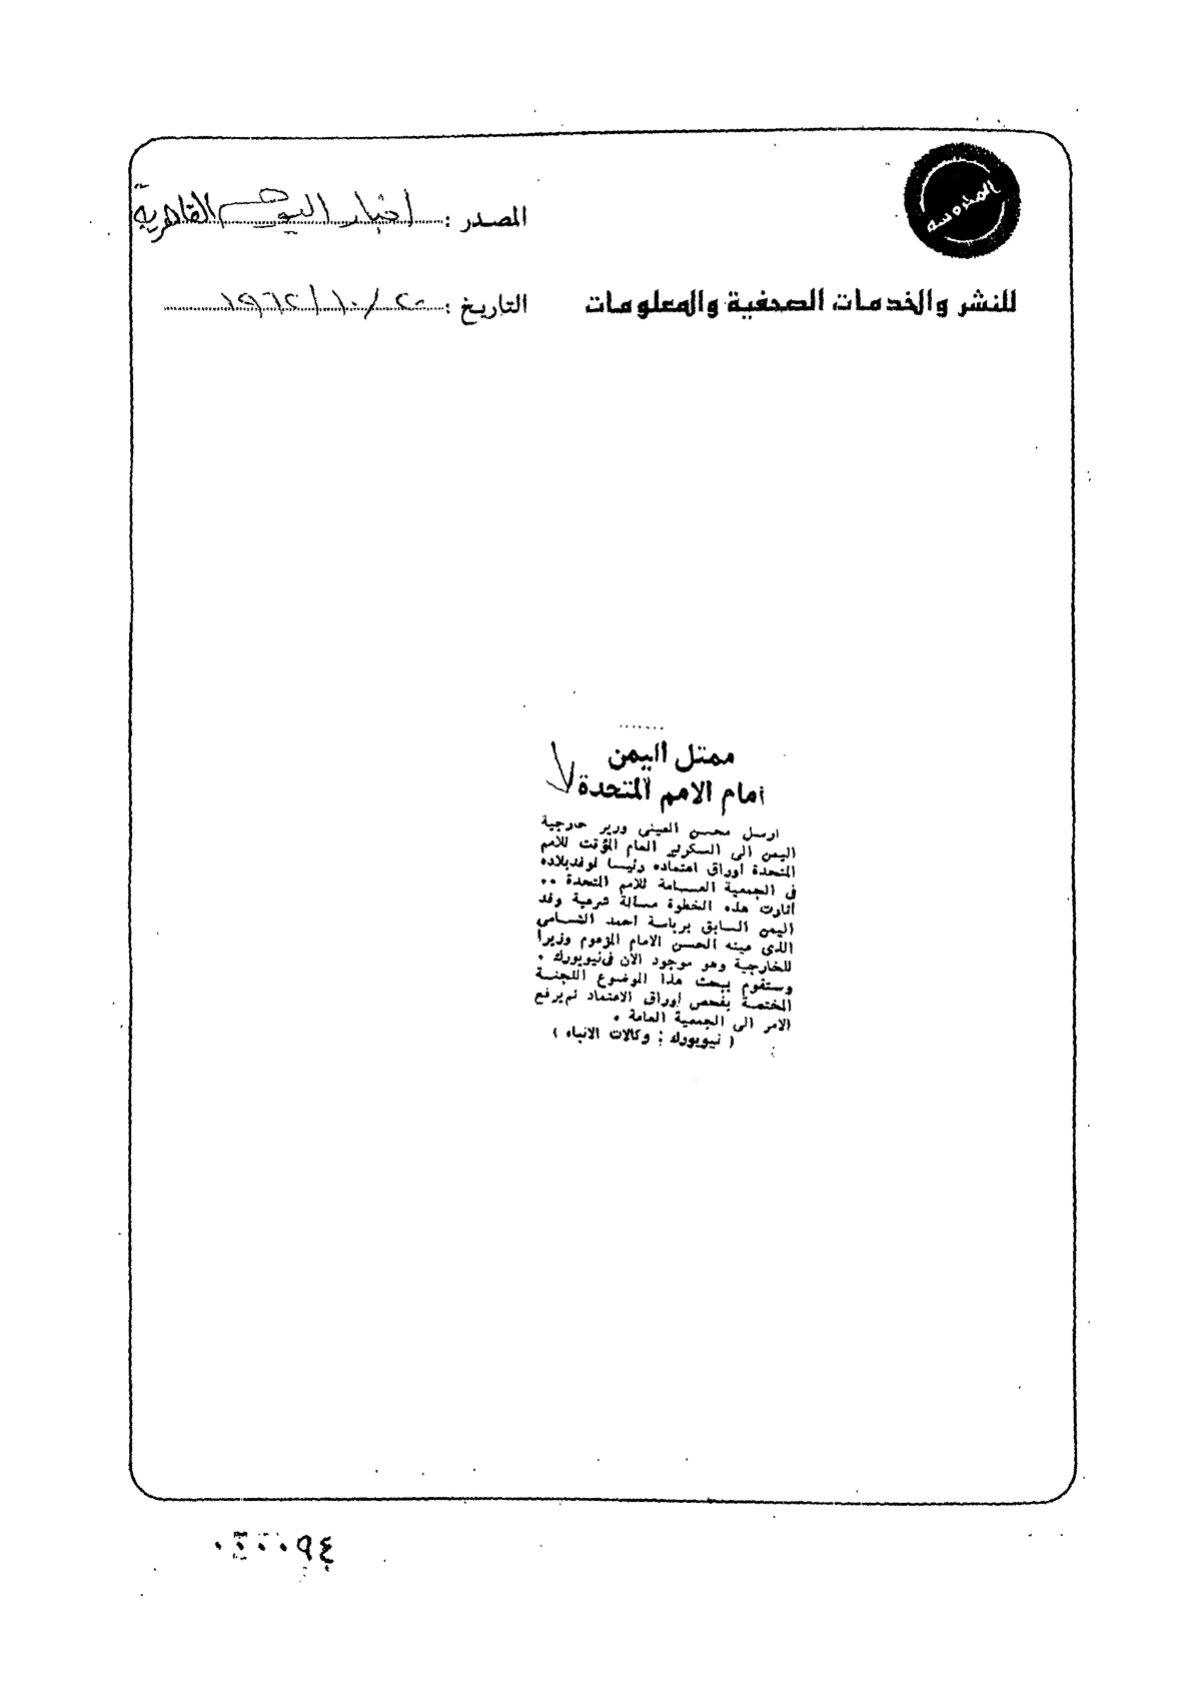 المحروسة
المصدر : اخبار اليوم القاهرية
للنشر والخدمات الصحفية والمعلومات
التاريخ : ٢٠/١٠/١٩٦٢
ممثل اليمن
أمام الامم المتحدة
ارسل محسن العيني وزير خارجية
اليمن الى السكرتير العام المؤقت للامم
المتحدة أوراق اعتماده رئيسا لوفد بلاده
في الجمعية العامة للامم المتحدة ..
أثارت هذه الخطوة مسألة شرعية وفد
اليمن السابق برياسة احمد الشامى
الذى عينه الحسن الامام المزعوم وزيرا
للخارجية وهو موجود الآن فى نيويورك .
وستقوم ببحث هذا الموضوع اللجنة
المختصة بفحص أوراق الاعتماد ثم يرفع
الامر الى الجمعية العامة .
( نيويورك : وكالات الانباء )
٩٤